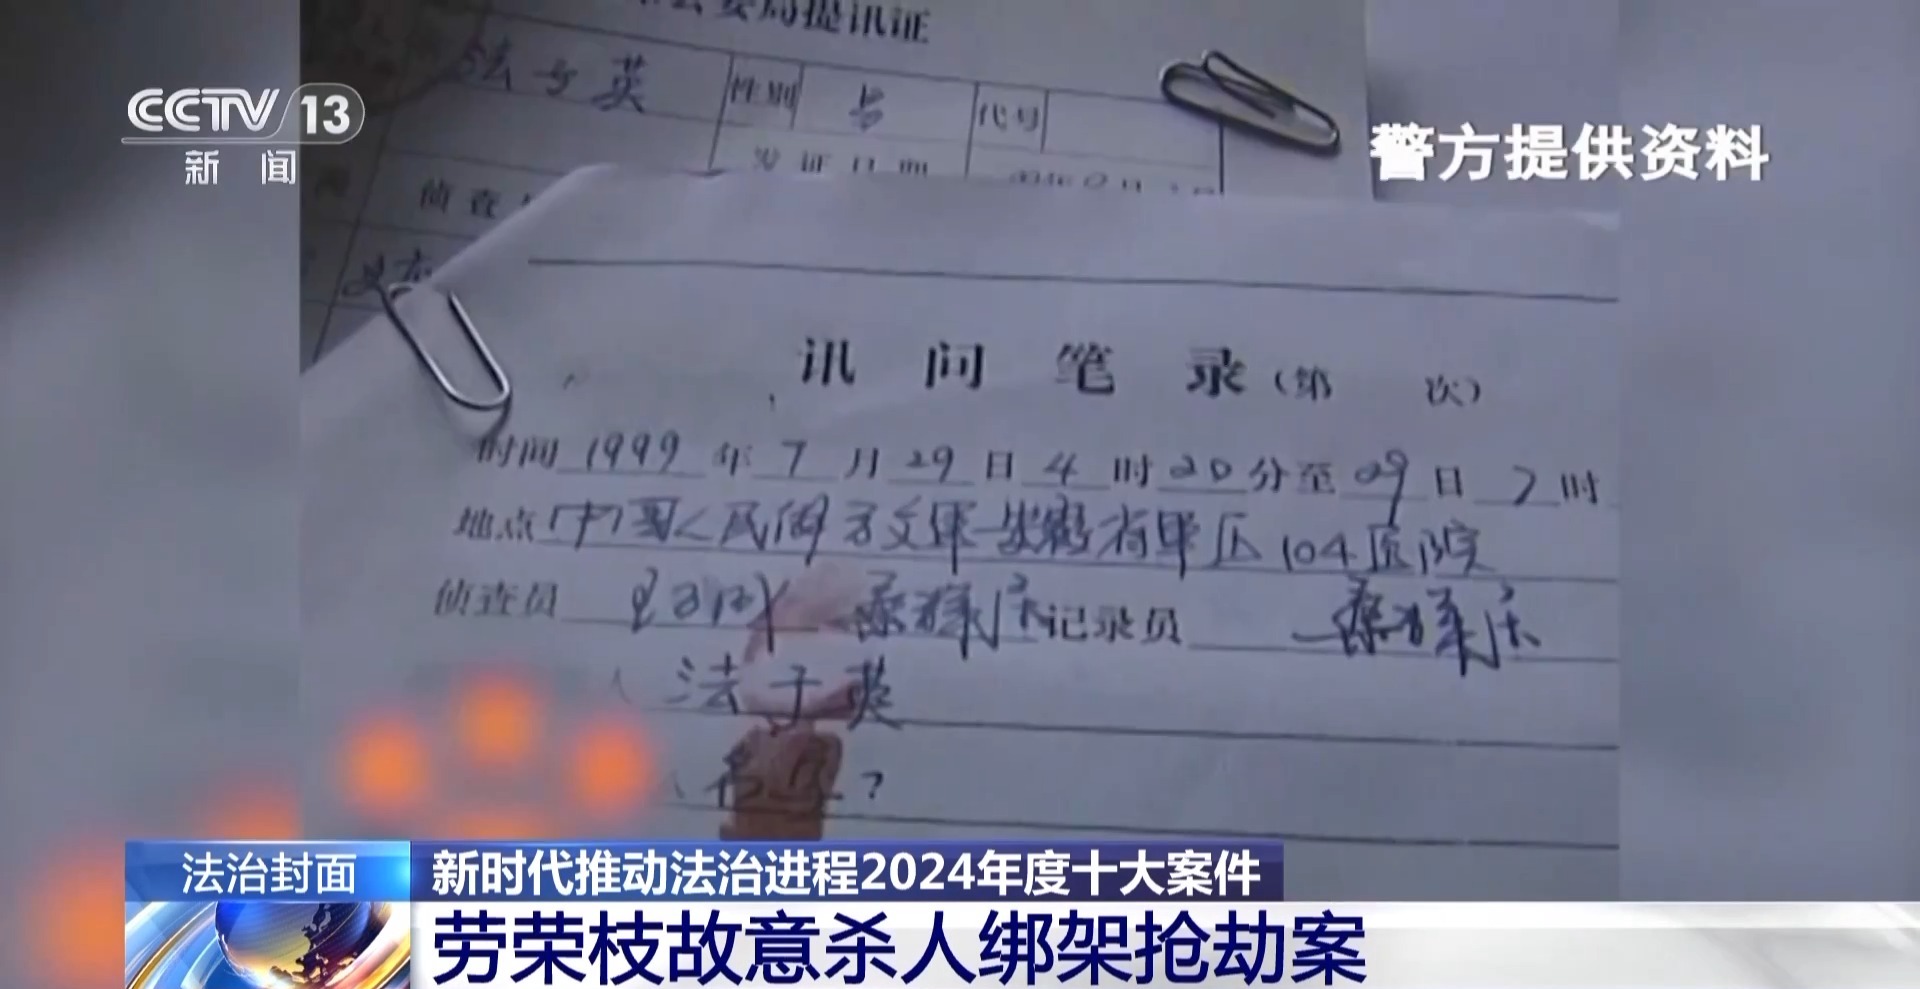 公安局提讯证
法子英 性别 男 代号
发证日期
侦查
CCTV 13
新闻
警方提供资料
讯问笔录（第 次）
时间 1999 年 7 月 29 日 4 时 20 分至 29 日 7 时
地点 中国人民解放军安徽省军区104医院
侦查员 记录员
人 法子英
？
法治封面
新时代推动法治进程2024年度十大案件
劳荣枝故意杀人绑架抢劫案